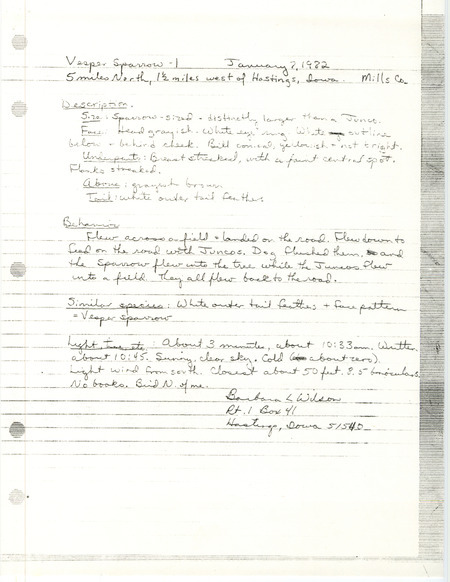 Vesper Sparrow - 1 January 7, 1982
5 miles North, 1½ miles west of Hastings, Iowa. Mills Co.
Description.
Size: Sparrow-sized + distinctly larger than a Junco.
Face: Head grayish. White eye ring White outline
below + behind cheek. Bill conical, yellowish + not bright.
Underparts: Breast streaked, with a faint central spot.
Flanks streaked.
Above: grayish brown.
Tail: white outer tail feathers
Behavior
Flew across a field + landed on the road. Flew down to
feed on the road with Juncos. Dog flushed them, and
the Sparrow flew into the tree while the Juncos flew
into a field. They all flew back to the road.
Similar species: White outer tail feathers + face pattern
= Vesper Sparrow
Light, Time, etc: About 3 minutes, about 10:33 am. Written
about 10:45. Sunny, clear sky. Cold (about zero).
Light wind from south. Closest about 50 feet. 8.5 binoculars.
No books. Bird N. of me.
Barbara L Wilson
Rt. 1 Box 41
Hastings, Iowa 51540